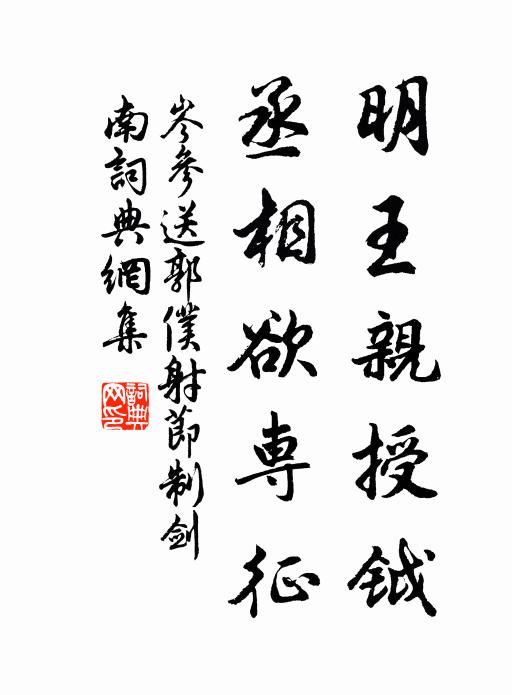 明王親授鉞
丞相欲專征
岑參送郭僕射節制劍
南詞典網集
詞典
网印